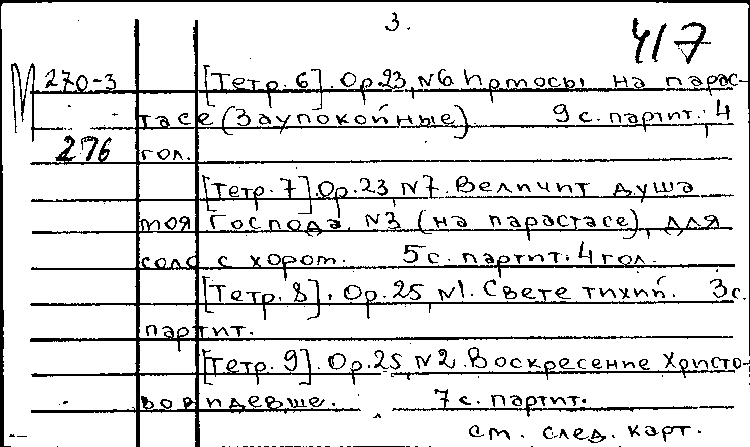 3.
417
М 270-3 [Тетр. 6]. Ор.23, №6. Ирмосы на парас-
тасе (Заупокойные). 9 с. партит., 4
276 гол.
[Тетр. 7]. Ор.23, №7. Величит душа
моя Господа. №3 (на парастасе), для
соло с хором. 5 с. партит. 4 гол.
[Тетр. 8]. Ор. 25, №1. Свете тихий. 3 с.
партит.
[Тетр. 9]. Ор.25, №2. Воскресение Христо-
во видевше. 7 с. партит.
см. след. карт.